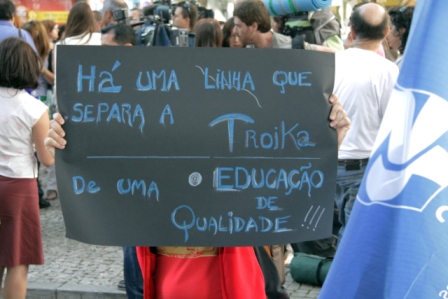 HÁ UMA LINHA QUE
SEPARA A TROIKA
DE UMA EDUCAÇÃO
DE
QUALIDADE !!!